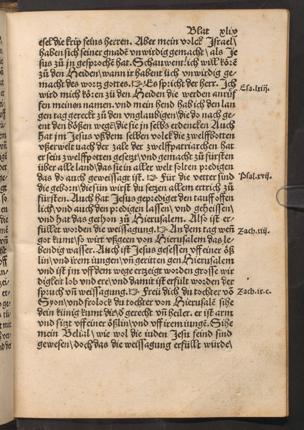 Blat xliv
esel die krip seins herren. Aber mein volck Israel/
haben sich seiner gnade vnwirdig gemacht/ als Je
sus zů jn gesprochen hat. Schauwent/ ich will kere
zů den Heiden/ wann ir habent üch vnwirdig ge-
macht des wort gottes. Es spricht der herr. Jch
wird mich keren zů den Heiden die werden anrüf
fen meinen namen. vnd mein hend hab ich den lan
gen tag gereckt zů den vnglaubigen/ die do nach ge
ent den bößen wege/ die sie jn selbs erdencken Auch
hat jm Jesus vß dem selben volck die zwelffbotten
vßerwelt nach der zale der zwelff patriarchen hat
er sein zwelffbotten gesetzt/ vnd gemacht zů fürsten
über alle land/ das sie in aller welt solten predigen
das do auch geweissagt ist. Für die vetter sind
die geborn/ die sün wirst du setzen allem ertrich zů
fürsten. Auch hat Jesus geprediget den tauff offen
lich/ vnd auch den predigen lassen/ vnd geheissen/
vnd hat das gethon zů Hierusalem. Also ist er-
füllet worden die weissagung. An dem tag wen
got kumt/ so wirt vßgeen von Hierusalem das le-
bendig wasser. Auch ist Jesus gesessen vff einer öß
lin/ vnd irem iungen/ vn geritten gen Hierusalem
vnd ist jm vff dem wege erzeigt worden grosse wir
digkeit lob vnd ere/ vnd damit ist erfült worden der
spruch vñ weissagung. Freü dich du tochter võ
Syon/ vnd frolock du tochter von Hierusalē sihe
dein künig kumt dir/ d gerecht vñ heiler. er ist arm
vnd sitzt vff einer ößlin/ vnd vff irem iungē. Sihe
mein Belial/ wie wol die iuden Jesu feind sind
gewesen/ doch das die weissagung erfüllt würde/
Esa.lxiij.
Blat.xvij.
Zach.iiij.
Zach.ix.c.